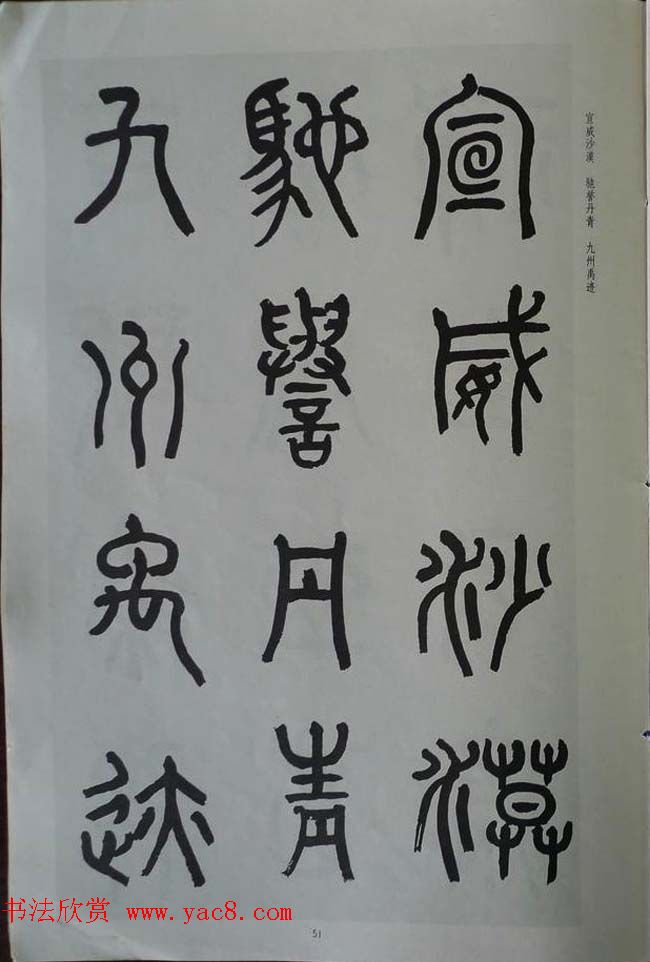 宣威沙漠 馳譽丹青 九州禹迹
宣威沙漠
馳譽丹青
九州禹迹
书法欣赏 www.yac8.com
51